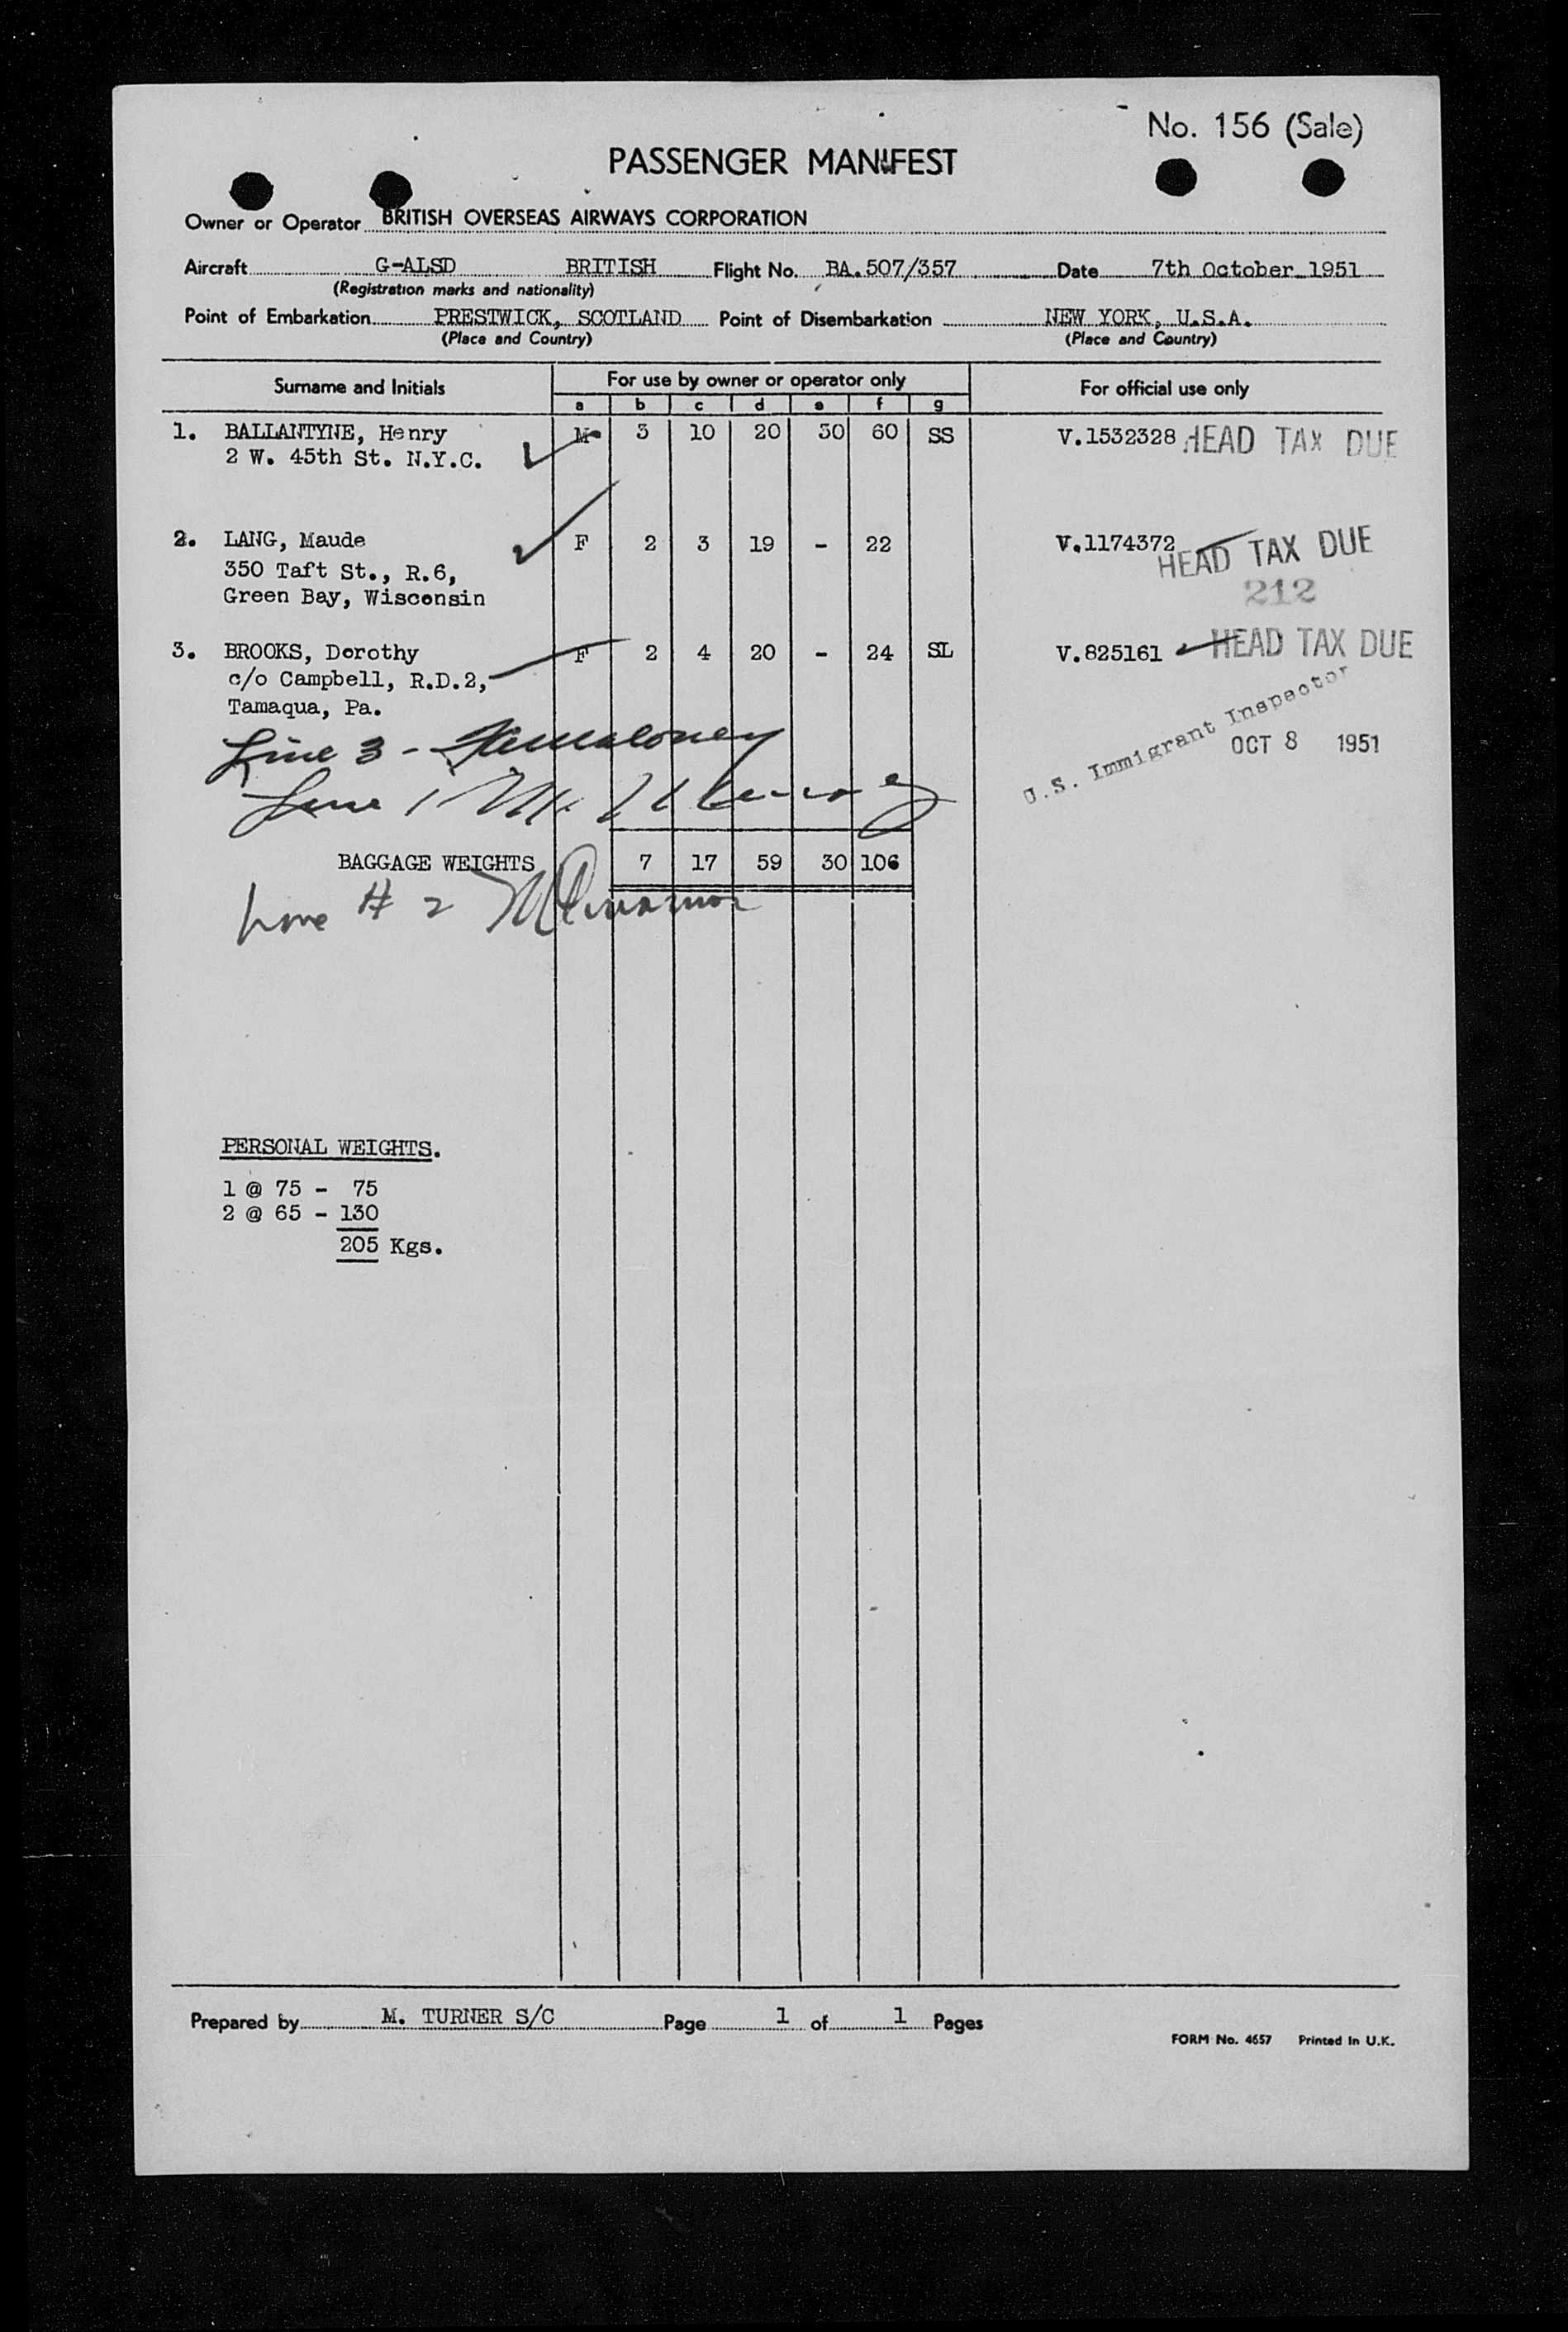 No. 156 (Sale)
PASSENGER MANIFEST
Owner or Operator BRITISH OVERSEAS AIRWAYS CORPORATION
Aircraft G-ALSD BRITISH Flight No. BA.507/357 Date 7th October 1951
(Registration marks and nationality)
Point of Embarkation PRESTWICK, SCOTLAND Point of Disembarkation NEW YORK, U.S.A.
(Place and Country) (Place and Country)
Surname and Initials For use by owner or operator only For official use only
a b c d e f g
1. BALLANTYNE, Henry M 3 10 20 30 60 SS V.1532328 HEAD TAX DUE
2 W. 45th St. N.Y.C.
2. LANG, Maude F 2 3 19 - 22 V.1174372 HEAD TAX DUE
350 Taft St., R.6, 212
Green Bay, Wisconsin
3. BROOKS, Dorothy F 2 4 20 - 24 SL V.825161 HEAD TAX DUE
c/o Campbell, R.D.2,
Tamaqua, Pa.
U.S. Immigrant Inspector
Line 3 - OCT 8 1951
Line 1
BAGGAGE WEIGHTS 7 17 59 30 106
Line # 2
PERSONAL WEIGHTS.
1 @ 75 - 75
2 @ 65 - 130
205 Kgs.
Prepared by M. TURNER S/C Page 1 of 1 Pages
FORM No. 4657 Printed in U.K.